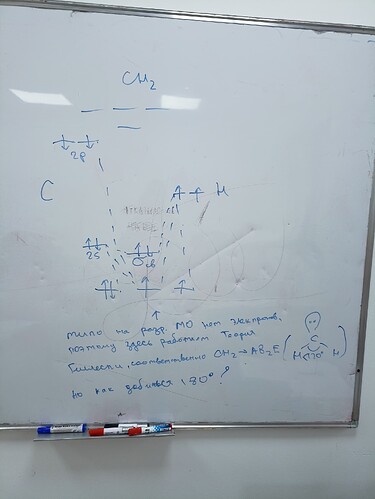 CH2
2p
C
H
2s
σсв
типо на разр. МО нет электронов,
поэтому здесь работает Теория
Гиллеспи, соответственно CH2 → AB2E ( C
H <120° H )
Но как добиться 180° ?